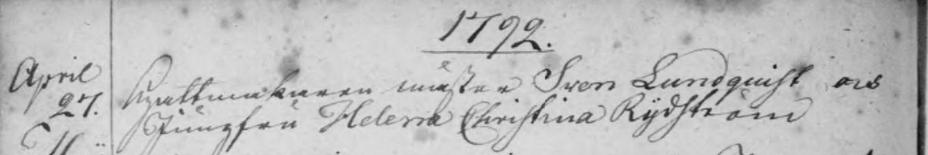 1792.
April
27.
Hattmakaren mäster Sven Lundquist och
Jungfru Helena Christina Rydström